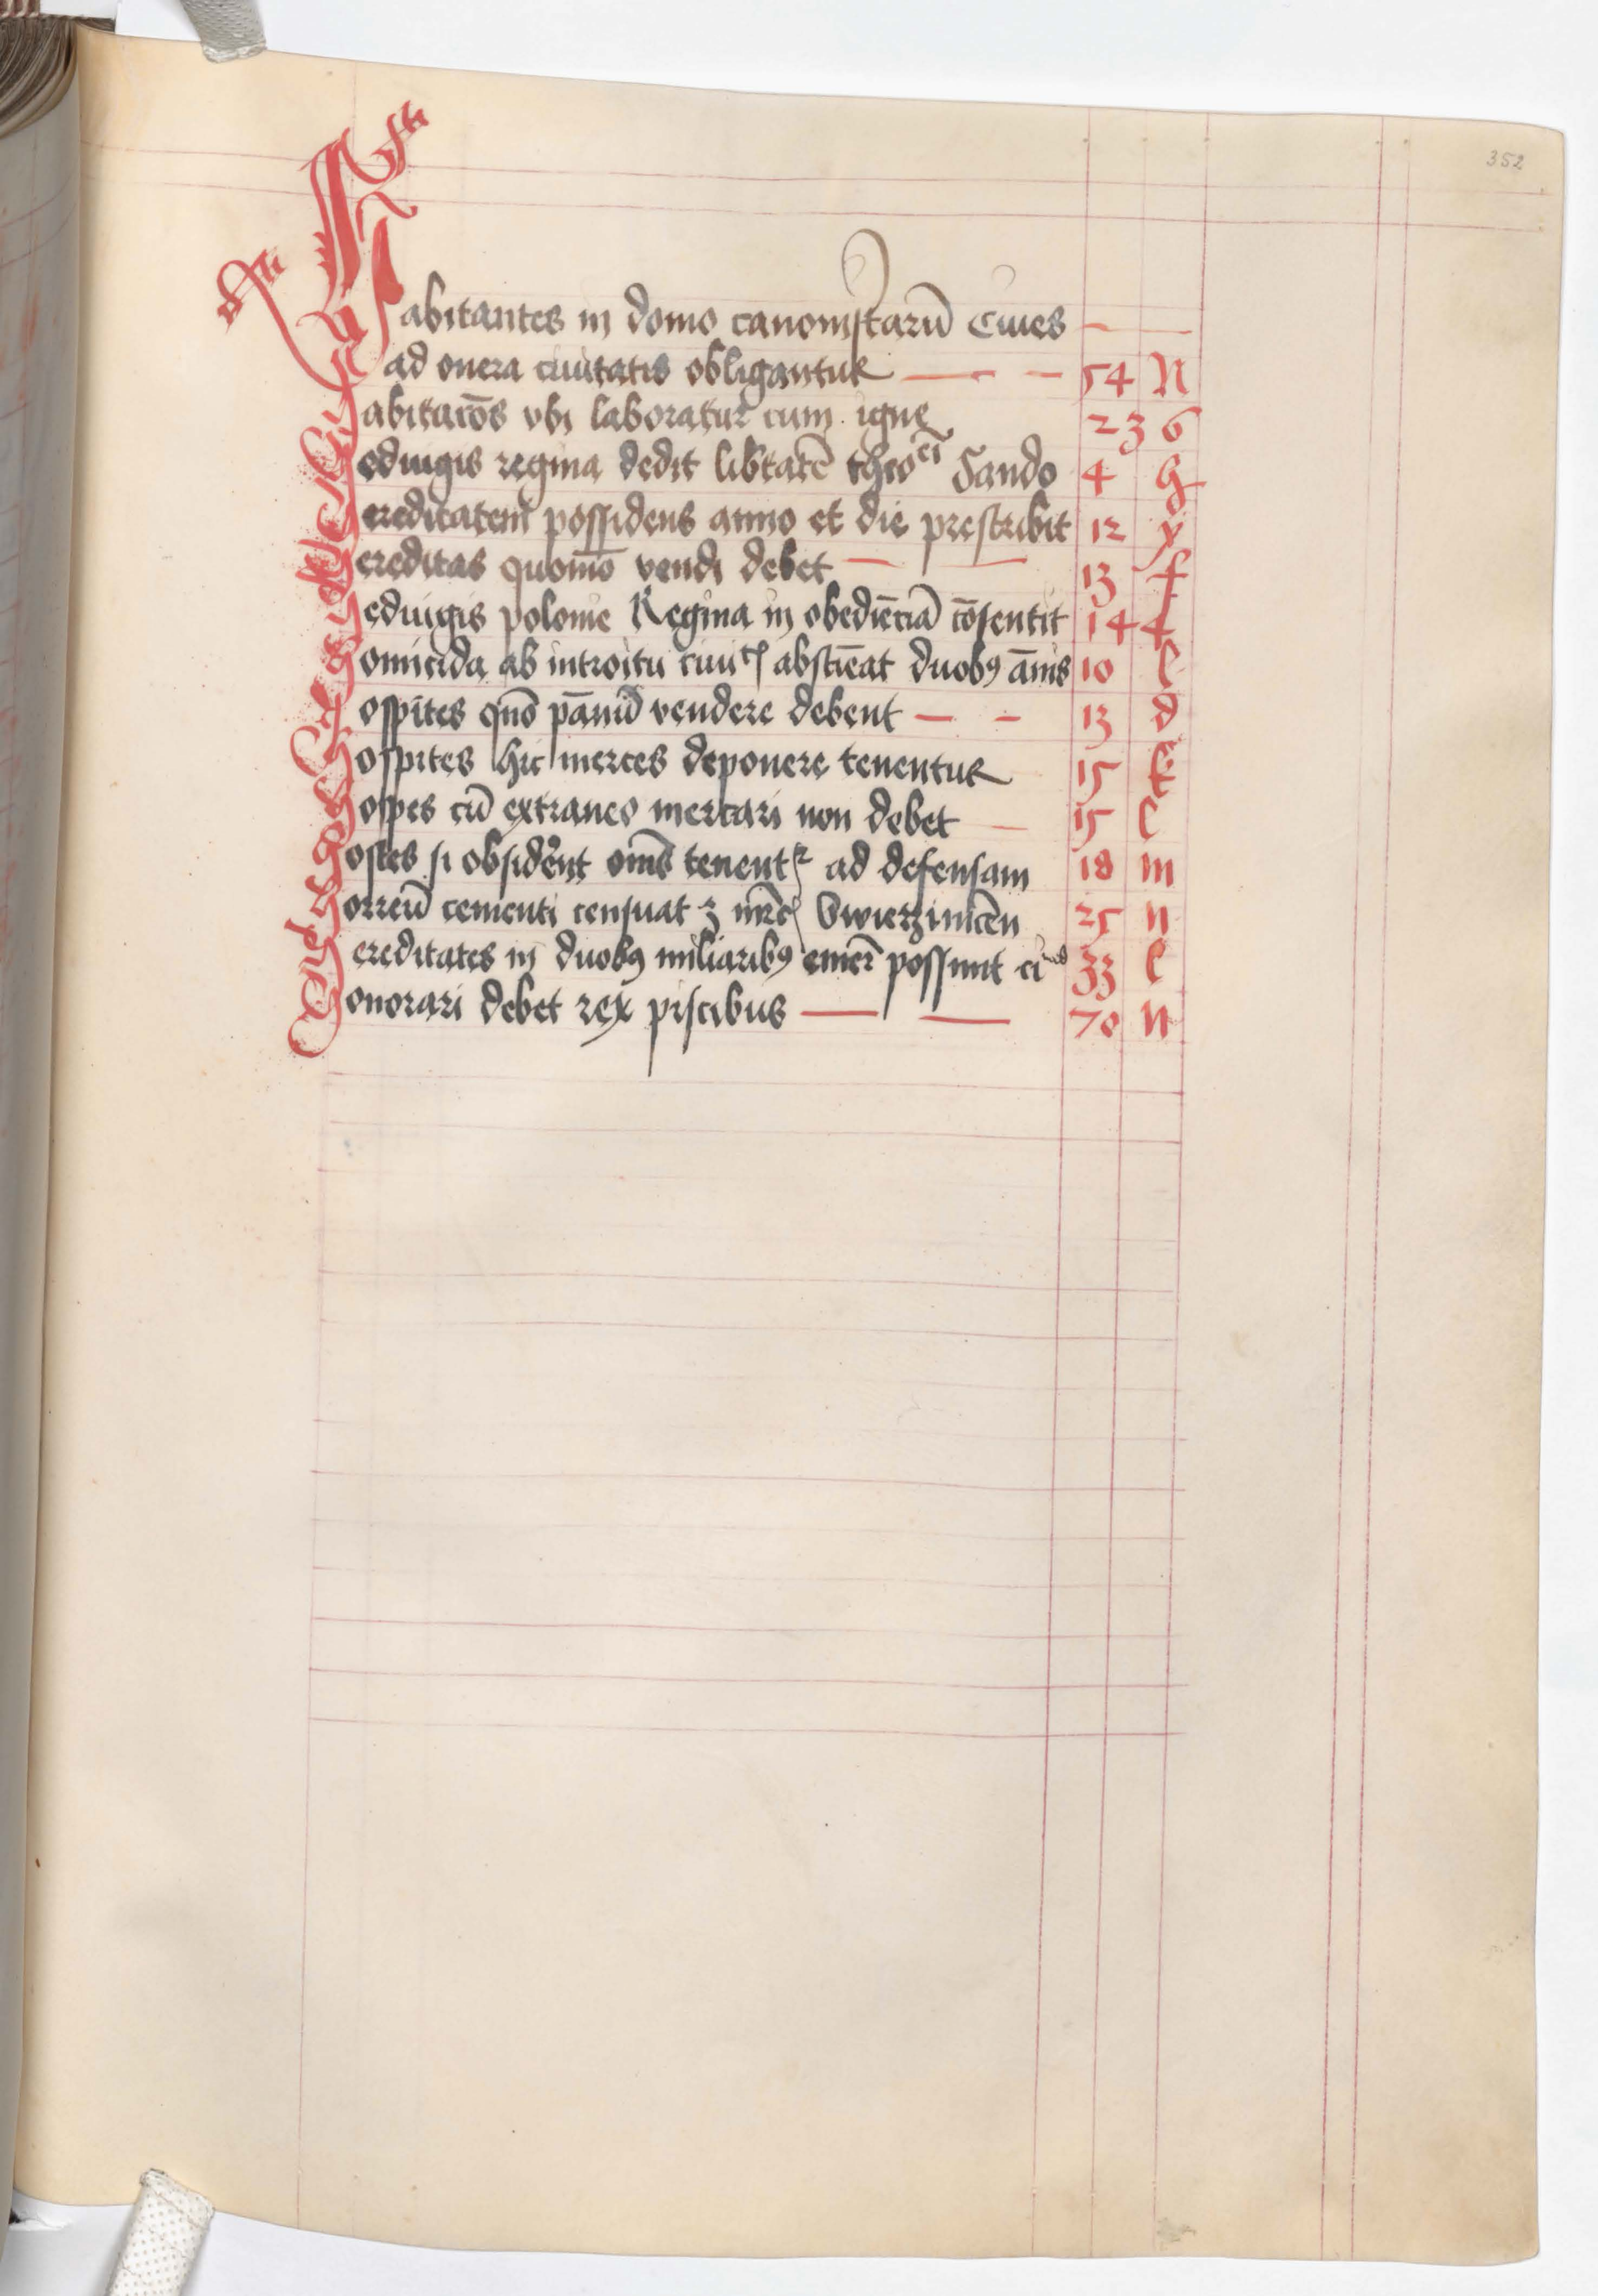 352
Habitantes in domo canonistarū Ciues
ad onera ciuitatis obligantur 54 N
Habitacōs vbi laboratur cum igne 23 6
Heduigis regina dedit libtatē theo^ci Sando 4 h
Hereditatem possidens anno et die prescribit 12 y
Hereditas quomō vendi debet 13 f
Heduigis polonie Regina in obediēciā cōsentit 14 4
Homicida ab introitu ciuitꝭ abstiēat duobꝰ ānis 10 l
Hospites quō pānū vendere debent 13 d
Hospites hic merces deponere tenentur 15 k
Hospes cū extraneo mercari non debet 15 l
Hostes si obsiderēt om̄s tenentꝛ ad defensam 18 m
Horreū cementi censuat 3 mrcꝭ Swierzinicen 25 n
Hereditates in duobꝰ miliaribꝰ emer̄ possunt 33 l
Honorari debet rex piscibus 70 n